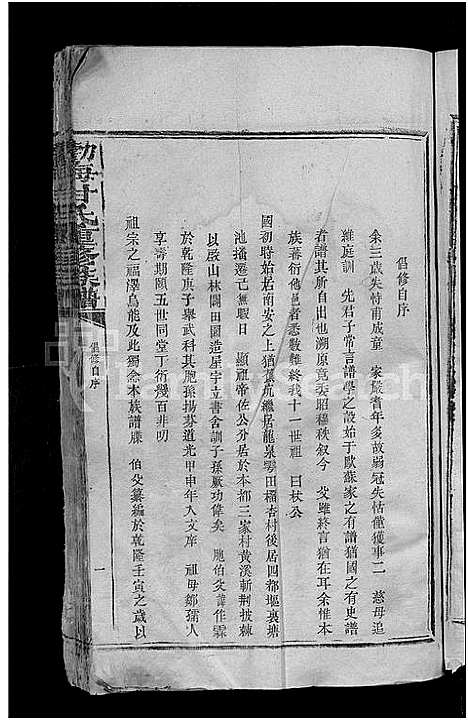 倡修自序
余三歲失恃甫成童　家嚴耆年多故弱冠失怙僅獲事二　慈母追
維庭訓　先君子常言譜學之設始于歐蘇家之有譜猶國之有史譜
者譜其所自出也溯原竟委昭穆秩叙今　父雖終言猶在耳余惟本
族蕃衍他邑者悉數難終我十一世祖　曰杖公
國初時始居南安之上猶　繼居龍泉　田榴杏村後居四都堀裏塘
池播遷己無暇日　顯祖帝佐公分居於本都三家村黄溪斬荆披棘
以啟山林闢田園造屋宇立書舍訓子孫厥功偉矣　胞伯父諱作霖
於乾隆庚子舉武科其胞孫揚芬道光甲申年入文庠　祖母鄒孺人
享壽期頤五世同堂丁衍幾百非叨
祖宗之福澤烏能及此獨念本族譜牒　伯父纂編於乾隆壬寅之歲以
勃海甘氏重修族譜
倡修自序
一